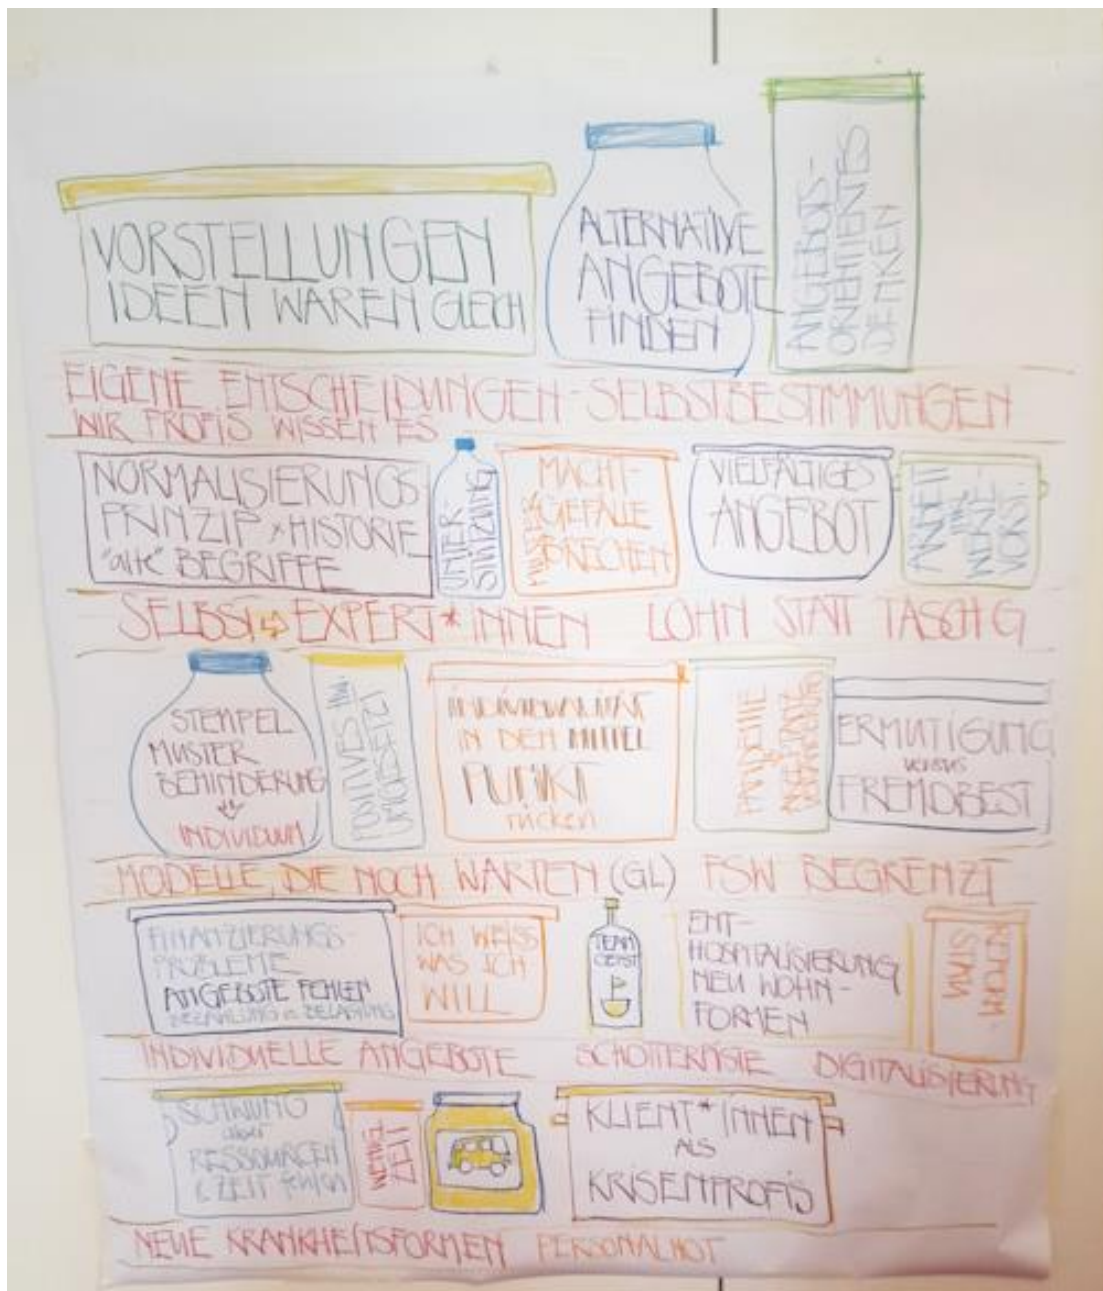 VORSTELLUNGEN
IDEEN WAREN GLEICH
ALTERNATIVE
ANGEBOTE
FINDEN
ANGEBOTS-
ORIENTIERTES
DENKEN
EIGENE ENTSCHEIDUNGEN-SELBSTBESTIMMUNGEN
WIR PROFIS WISSEN ES
NORMALISIERUNGS
PRINZIP HISTORIE
"alte" BEGRIFFE
UNTER
STÜTZUNG
MACHT-
GEFÄLLE
BRECHEN
VIELFÄLTIGES
ANGEBOT
SELBST ⇨ EXPERT*INNEN LOHN STATT TASCHG
STEMPEL
MUSTER
BEHINDERUNG
INDIVIDUUM
POSITIVES
UMGESETZT
INDIVIDUALITÄT
IN DEN MITTEL
PUNKT
rücken
ERMUTIGUNG
versus
FREMDBEST
MODELLE, DIE NOCH WARTEN (GL) FSW BEGRENZT
FINANZIERUNGS-
PROBLEME
ANGEBOTE FEHLEN
ICH WEISS
WAS ICH
WILL
TEAM
GEIST
ENT-
HOSPITALISIERUNG
NEU WOHN-
FORMEN
REFORM-
STAU
INDIVIDUELLE ANGEBOTE SCHOTTERPISTE DIGITALISIERUNG
SCHWUNG
aber
RESSOURCEN
& ZEIT fehlen
WENIG
ZEIT
KLIENT*INNEN
ALS
KRISENPROFIS
NEUE KRANKHEITSFORMEN PERSONALNOT